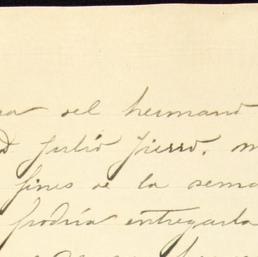 del hermano
Julio Fierro. m
fines de la sema
podría entregarla